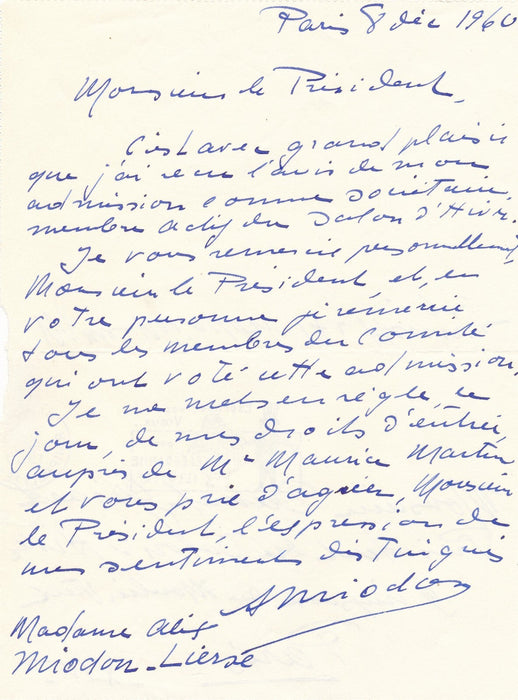 Paris 8 déc 1960
Monsieur le Président,
C'est avec grand plaisir
que j'ai reçu l'avis de mon
admission comme sociétaire,
membre actif du Salon d'Hiver.
Je vous remercie personnellement,
Monsieur le Président et, en
votre personne je remercie
tous les membres du Comité
qui ont voté cette admission.
Je me mets en règle, ce
jour, de mes droits d'entrée,
auprès de Mr Maurice Martin
et vous prie d'agréer, Monsieur
le Président, l'espression de
mes sentiments distingués
AMiodon
Madame Alix
Miodon-Lierse